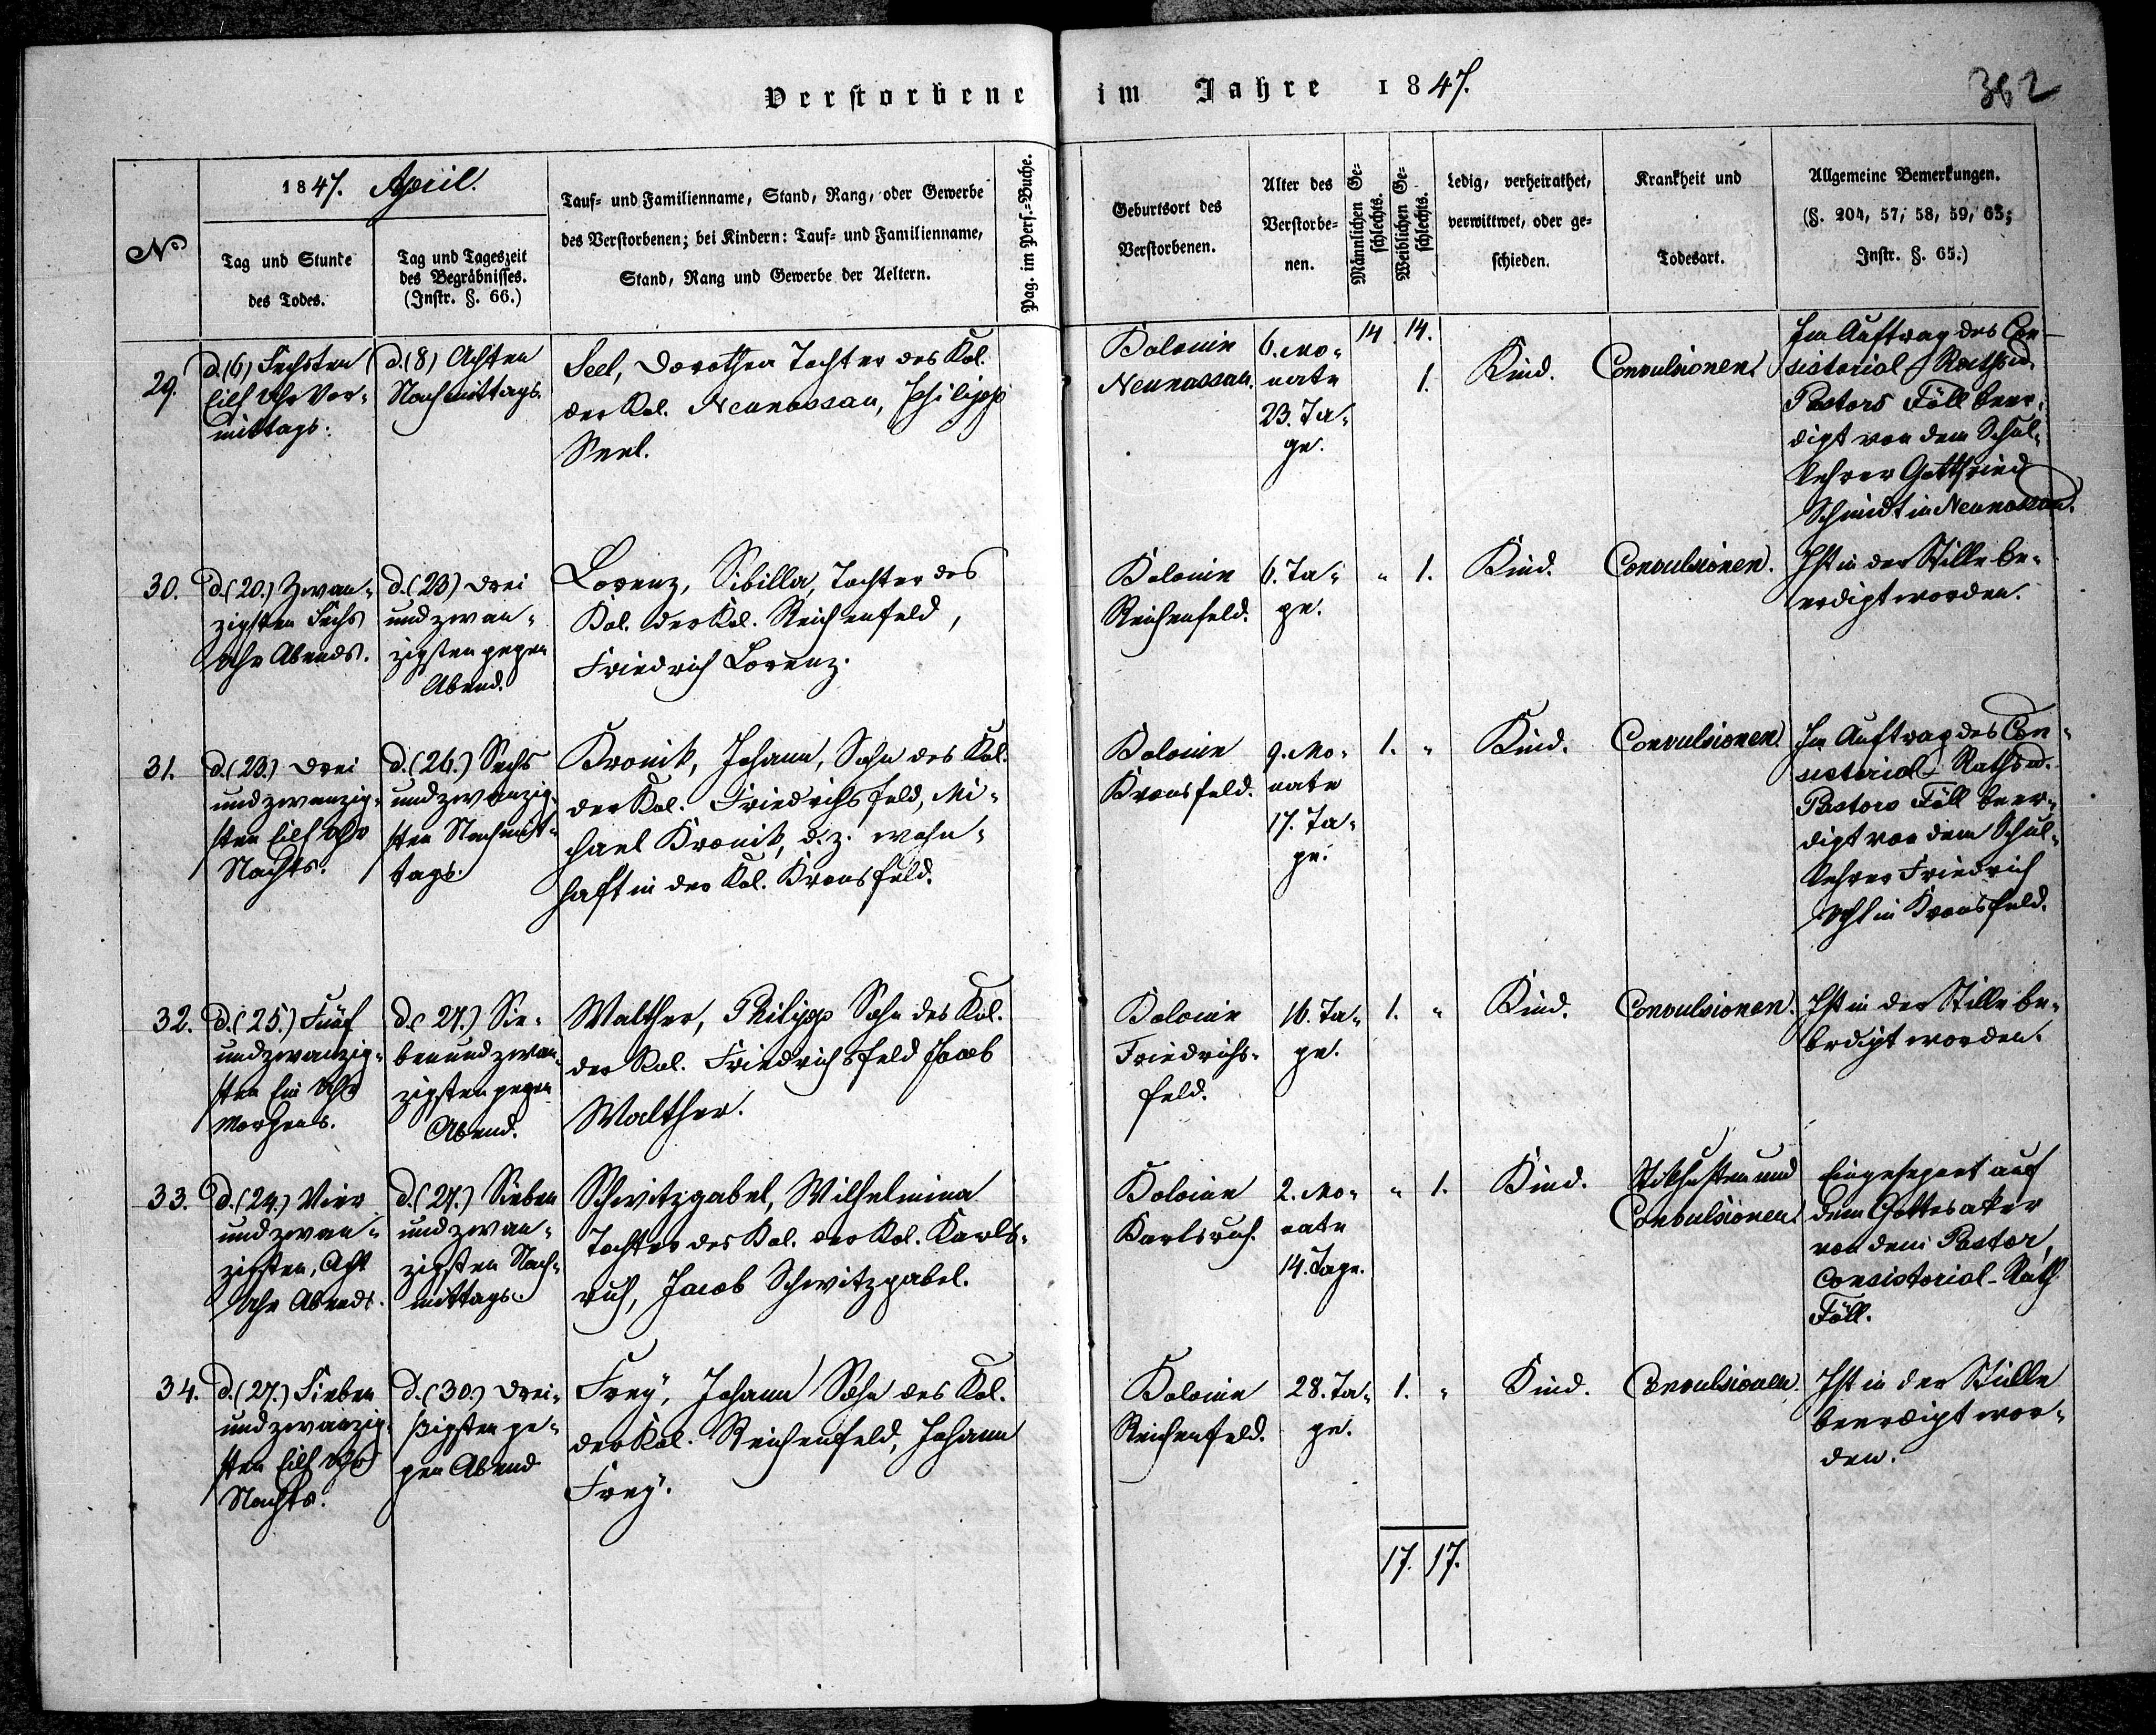 Verstorbene im Jahre 1847.
362
1847. April.
No
Tag und Stunde
des Todes.
Tag und Tageszeit
des Begräbnisses.
(Instr. §. 66.)
Tauf- und Familienname, Stand, Rang, oder Gewerbe
des Verstorbenen; bei Kindern: Tauf- und Familienname,
Stand, Rang und Gewerbe der Aeltern.
Pag. im Pers.-Buche.
Geburtsort des
Verstorbenen.
Alter des
Verstorbe-
nen.
Männlichen Ge-
schlechts.
Weiblichen Ge-
schlechts.
Ledig, verheirathet,
verwittwet, oder ge-
schieden.
Krankheit und
Todesart.
Allgemeine Bemerkungen.
(§. 204, 57, 58, 59, 63;
Instr. §. 65.)
14 14.
29.
d. (6) Sechsten
Eilf Uhr Vor-
mittags.
d. (8) Achten
Nachmittags.
Seel, Dorothea Tochter des Kol.
der Kol. Neunassau, Philipp
Seel.
Kolonie
Neunassau.
6. Mo-
nate
23. Ta-
ge.
1.
Kind.
Convulsionen.
Im Auftrag des Con-
sistorial-Raths u.
Pastors Föll beer-
digt von dem Schul-
lehrer Gottfried
Schmidt in Neunassau.
30.
d. (20.) Zwan-
zigsten Sechs
Uhr Abends.
d. (23) Drei
und zwan-
zigsten gegen
Abend.
Lorenz, Sibilla, Tochter des
Kol. der Kol. Reichenfeld,
Friedrich Lorenz.
Kolonie
Reichenfeld.
6. Ta-
ge.
" 1.
Kind.
Convulsionen.
Ist in der Stille be-
erdigt worden.
31.
d. (23.) Drei
und zwanzig-
sten Eilf Uhr
Nachts.
d. (26.) Sechs
und zwanzig-
sten Nachmit-
tags.
Kronik, Johann, Sohn des Kol.
der Kol. Friedrichsfeld, Mi-
chael Kronik, d. z. wohn-
haft in der Kol. Kronsfeld.
Kolonie
Kronsfeld.
9. Mo-
nate
17. Ta-
ge.
1. "
Kind.
Convulsionen.
Im Auftrag des Con-
sistorial-Raths u.
Pastors Föll beer-
digt von dem Schul-
lehrer Friedrich
in Kronsfeld.
32.
d. (25.) Fünf
und zwanzig-
sten Ein Uhr
Morgens.
d. (27.) Sie-
ben und zwan-
zigsten gegen
Abend.
Walther, Philipp Sohn des Kol.
der Kol. Friedrichsfeld Jacob
Walther.
Kolonie
Friedrichs-
feld.
16. Ta-
ge.
1. "
Kind.
Convulsionen.
Ist in der Stille be-
erdigt worden.
33.
d. (24.) Vier
und zwan-
zigsten, Acht
Uhr Abends.
d. (27.) Sieben
und zwan-
zigsten Nach-
mittags.
Schwitzgabel, Wilhelmina
Tochter des Kol. der Kol. Karls-
ruh, Jacob Schwitzgabel.
Kolonie
Karlsruh.
2. Mo-
nate
14. Tage.
" 1.
Kind.
Stikhusten und
Convulsionen
Eingesegnet auf
dem Gottesaker
von dem Pastor,
Consistorial-Rath
Föll.
34.
d. (27.) Sieben
und zwanzig-
sten Eilf Uhr
Nachts.
d. (30.) Drei-
ßigsten ge-
gen Abend
Frey, Johann Sohn des Kol.
der Kol. Reichenfeld, Johann
Frey.
Kolonie
Reichenfeld.
28. Ta-
ge.
1. "
Kind.
Convulsionen.
Ist in der Stille
beerdigt wor-
den.
17. 17.